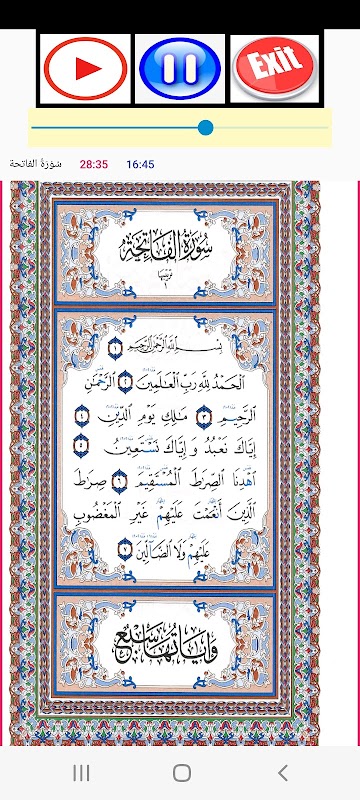 Exit
سورة الفاتحة 28:35 16:45
سُورَةُ الفَاتِحَةِ
ترتيبها
١
بِسْمِ اللَّهِ الرَّحْمَٰنِ الرَّحِيمِ ١
الْحَمْدُ لِلَّهِ رَبِّ الْعَالَمِينَ ٢ الرَّحْمَٰنِ
الرَّحِيمِ ٣ مَلِكِ يَوْمِ الدِّينِ ٤
إِيَّاكَ نَعْبُدُ وَإِيَّاكَ نَسْتَعِينُ ٥
اهْدِنَا الصِّرَاطَ الْمُسْتَقِيمَ ٦ صِرَاطَ
الَّذِينَ أَنْعَمْتَ عَلَيْهِمْ غَيْرِ الْمَغْضُوبِ
عَلَيْهِمْ وَلَا الضَّالِّينَ ٧
وَآيَاتُهَا سَبْعٌ